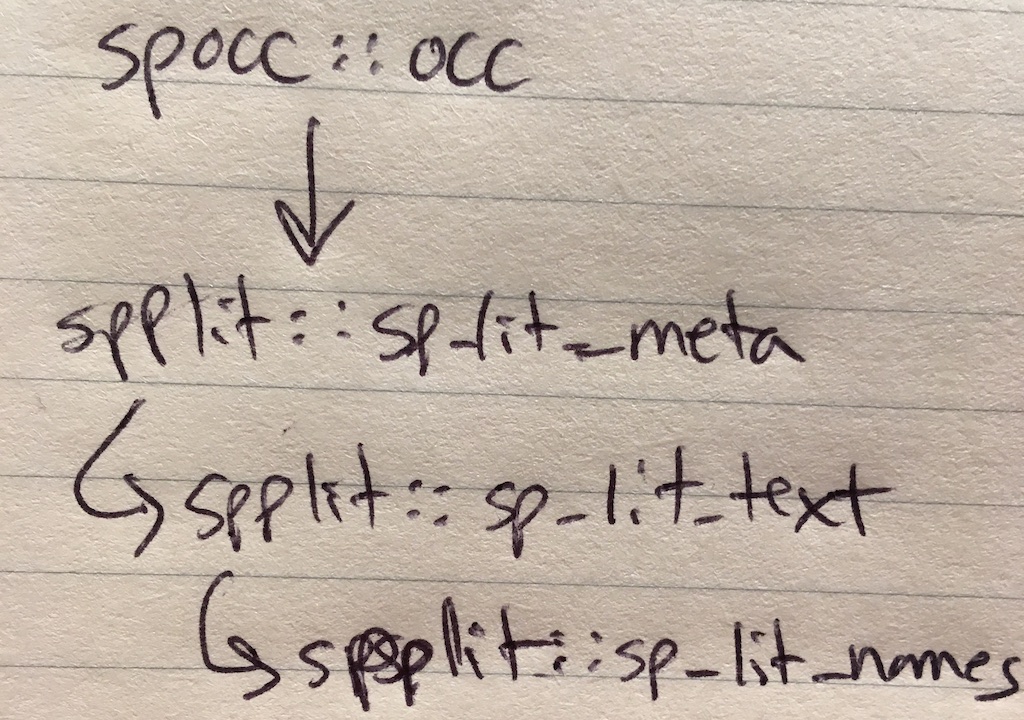 spocc::occ
spplit::sp_lit_meta
spplit::sp_lit_text
spplit::sp_lit_names